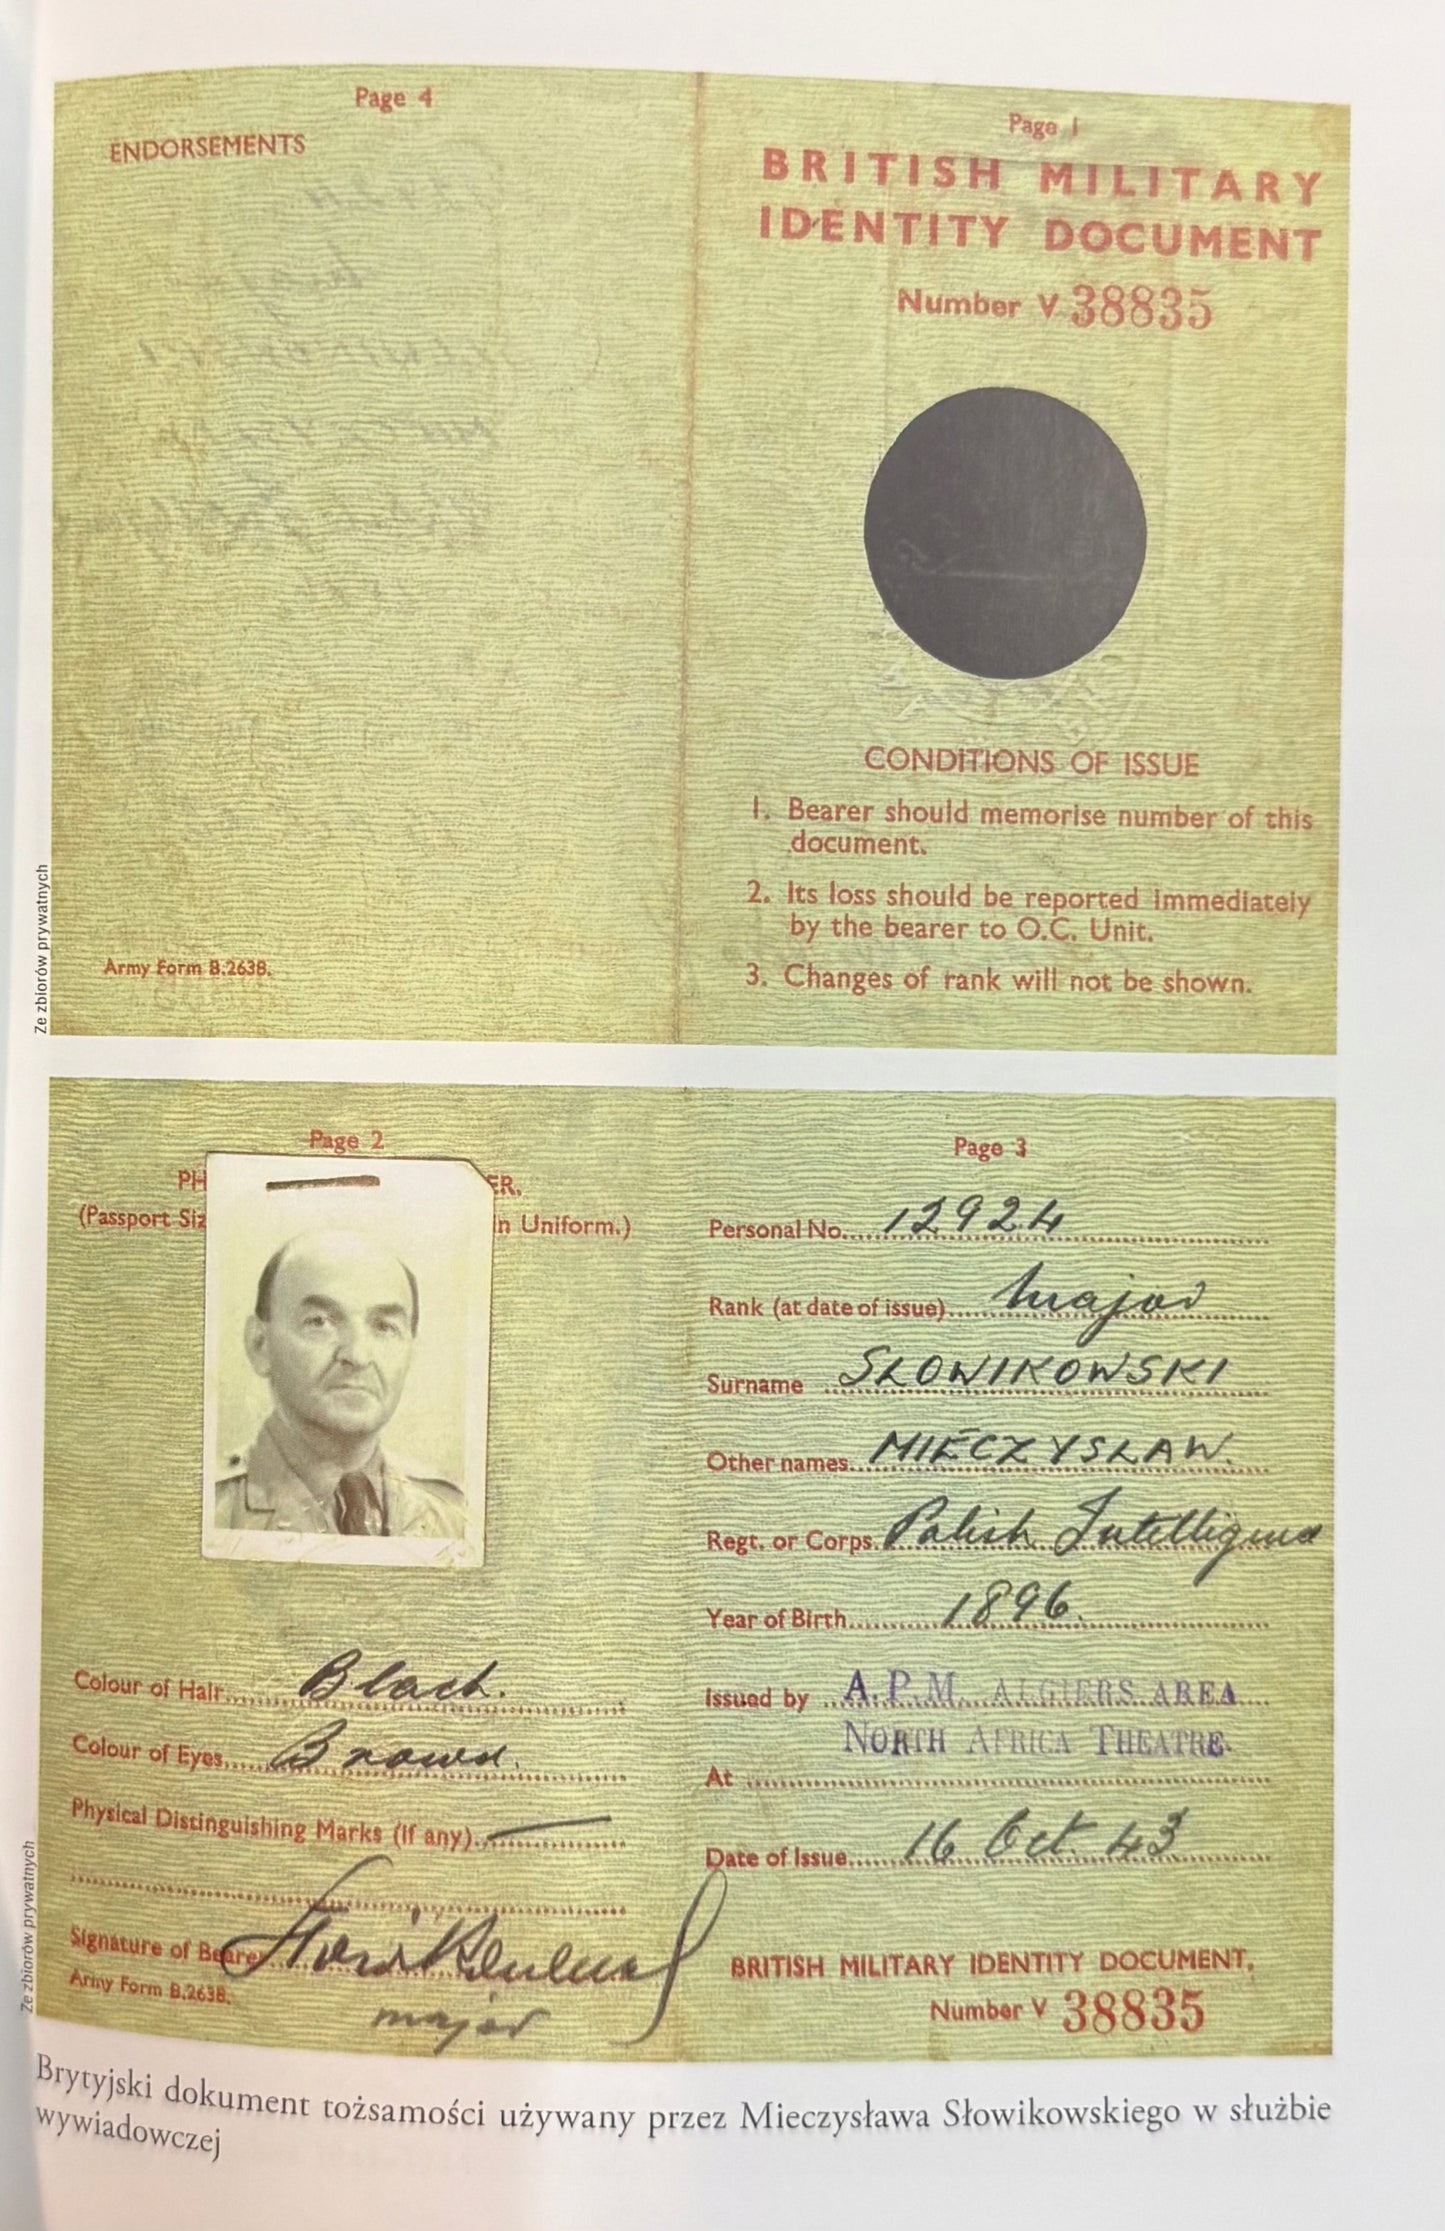 Page 4
ENDORSEMENTS
Army Form B.2638.
Page 1
BRITISH MILITARY
IDENTITY DOCUMENT
Number V 38835
CONDITIONS OF ISSUE
1. Bearer should memorise number of this
document.
2. Its loss should be reported immediately
by the bearer to O.C. Unit.
3. Changes of rank will not be shown.
Ze zbiorów prywatnych
Page 2
PH ER.
(Passport Siz in Uniform.)
Colour of Hair Black.
Colour of Eyes Brown.
Physical Distinguishing Marks (if any)
Signature of Bearer
major
Army Form B.2638.
Page 3
Personal No. 12924
Rank (at date of issue) Major
Surname SŁOWIKOWSKI
Other names MIECZYSŁAW.
Regt. or Corps. Polish Intelligence
Year of Birth 1896.
Issued by A.P.M. ALGIERS AREA
NORTH AFRICA THEATRE.
At
Date of Issue 16 Oct. 43
BRITISH MILITARY IDENTITY DOCUMENT.
Number V 38835
Ze zbiorów prywatnych
Brytyjski dokument tożsamości używany przez Mieczysława Słowikowskiego w służbie
wywiadowczej